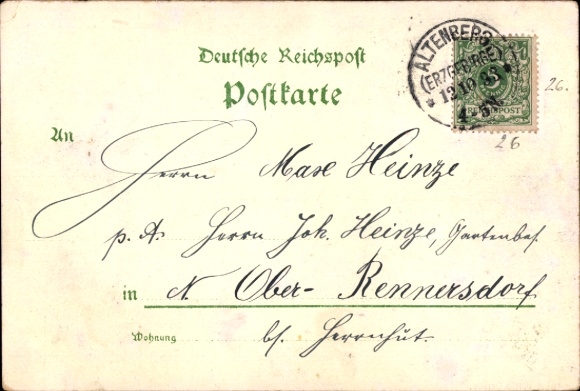 Deutsche Reichspost
Postkarte
ALTENBERG
(ERZGEBIRGE)
REICHSPOST
26.
26
An
Herrn Max Heinze
p. A. Herrn Joh. Heinze, Gartenbes.
in N. Ober- Rennersdorf
Wohnung bf. Herrnhut.